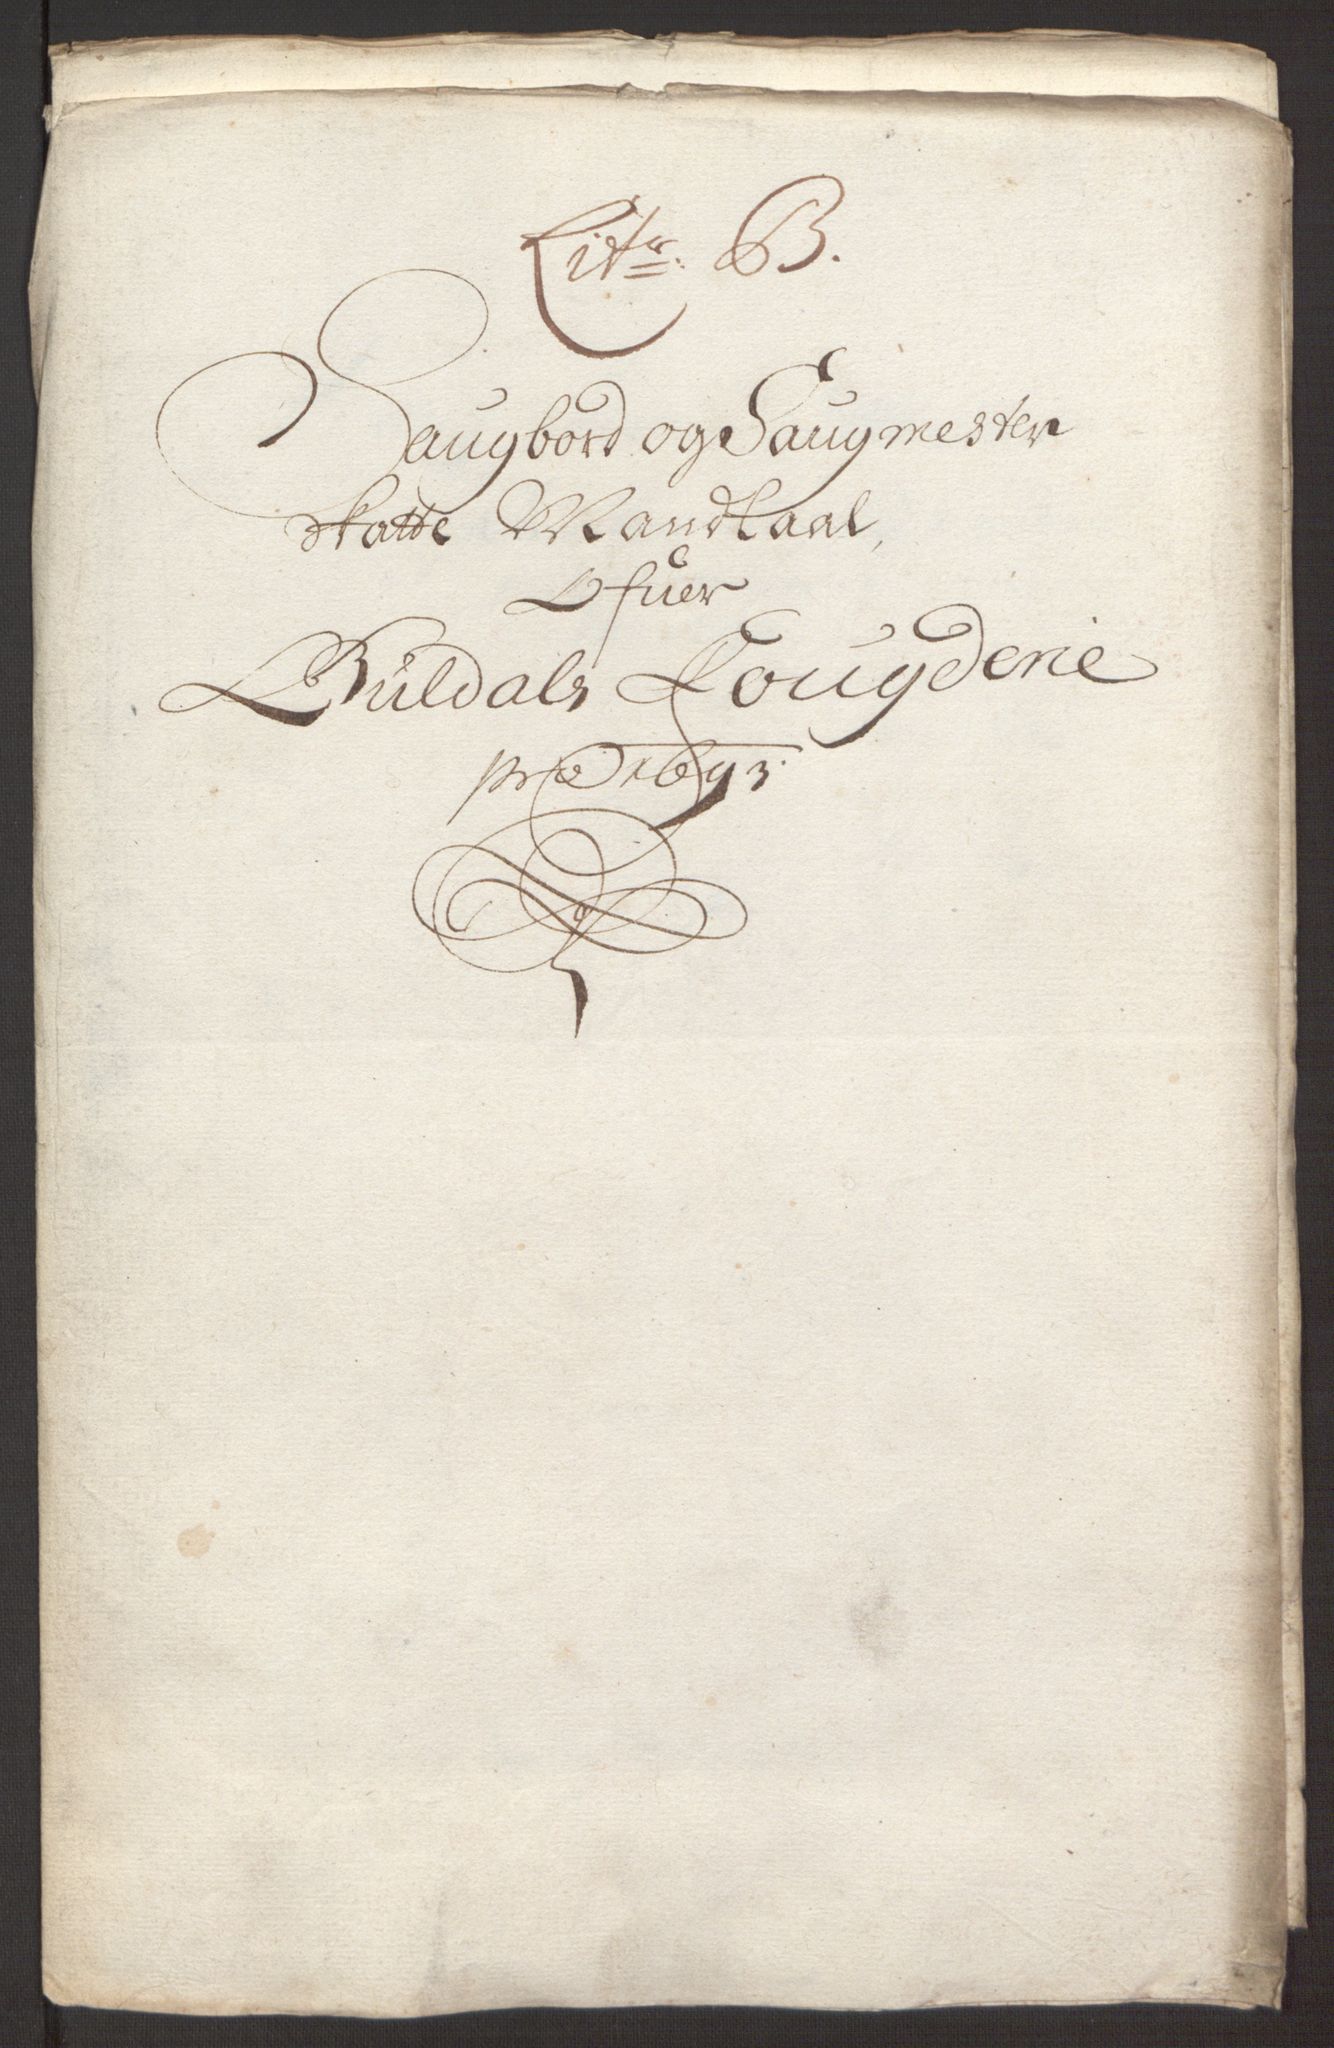 Litr. B.
Saugbord og Saugmester
skatte Mandtaal,
Ofuer
Guldals Fougderie
pro 1693.